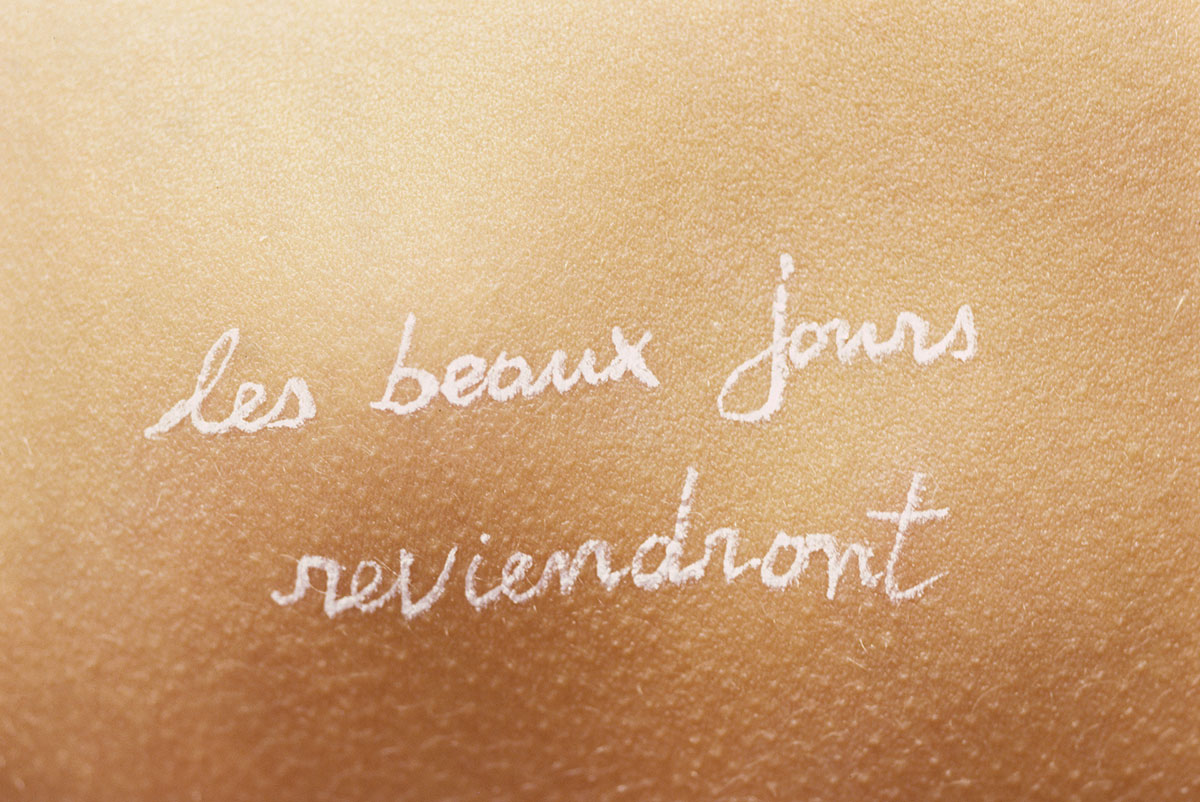 les beaux jours
reviendront